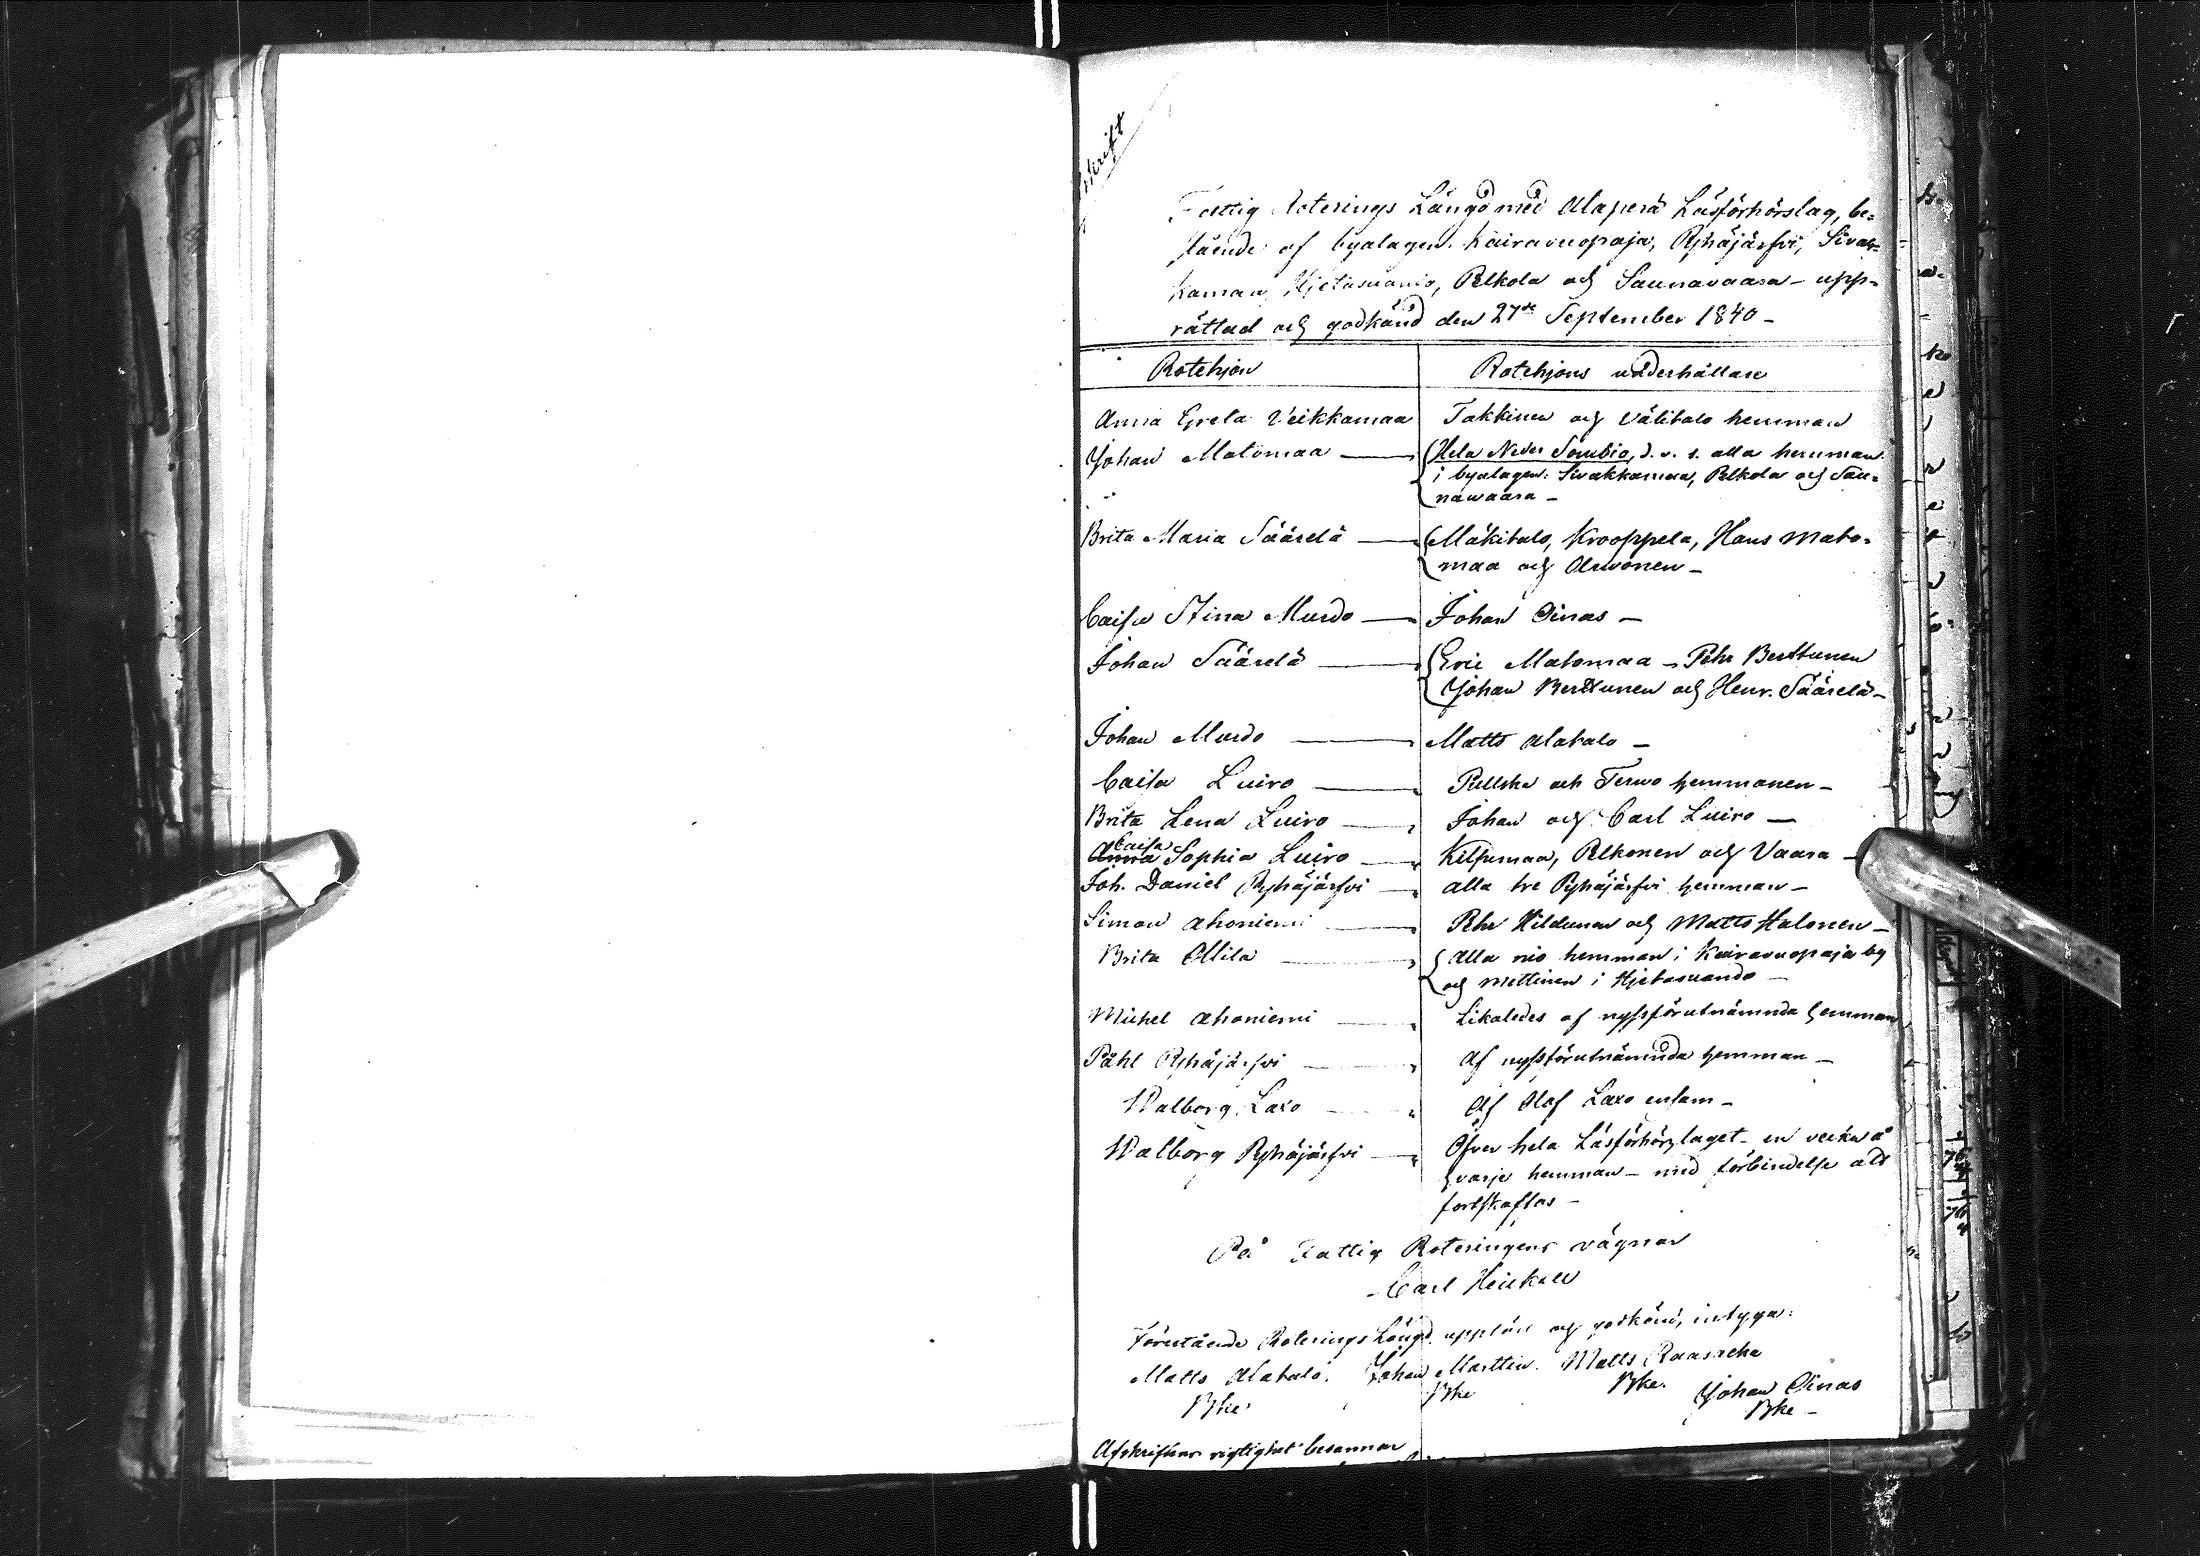 Fattig Roterings Längd med Alaperä Läsförhörslag, be-
stående af byalagen. Kairavuopaja, Pyhäjärfvi, Sivak-
kamaa, Hjetasuando, Pelkola och Saunavaara - upp-
rättad och godkänd den 27de September 1840 -
Rotehjon Rotehjons underhållare
Anna Greta Veikkamaa Takkinen och Välitalo hemman
Johan Matomaa — Hela Neder Sombio, d. v. s. alla hemman
i byalagen: Sivakkamaa, Pelkola och Sau-
navaara -
Brita Maria Säärelä — Mäkitalo, Krooppela, Hans Mato-
maa och Arvonen -
Caisa Stina Murdo — Johan Oinas -
Johan Säärelä — Eric Matomaa - Pehr Berttunen
Johan Berttunen och Henr. Säärelä -
Johan Murdo — Matts Alatalo -
Caisa Luiro — och Tervo hemmanen -
Brita Lena Luiro — Johan och Carl Luiro —
Caisa
Anna Sophia Luiro — Kilpimaa, Pelkonen och Vaara -
Joh. Daniel Pyhäjärfvi — alla tre Pyhäjärfvi hemman -
Simon Ahoniemi — Pehr Hildunen och Matts Halonen -
Brita Ollila — Alla nio hemman i Kairavuopaja by
och Mettinen i Hjetasuando -
Michel Ahoniemi — Likaledes af nyssförutnämnda hemman
Påhl Pyhäjärfvi — Af nyssförutnämnda hemman -
Walborg Laxo — Af Olof Laxo ensam -
Walborg Pyhäjärfvi — Öfver hela Läsförhörslaget - en vecka å
hvarje hemman - med förbindelse att
fortskaffas -
På Fattig Roteringens vägnar
Carl Heickell
Förestående Roterings Längd uppläst och godkänd, intyga:
Matts Alatalo. Johan Marttin. Matts Raasacka
Bke Bke Bke. Johan Oinas
Bke -
Afskriftens rigtighet besannar